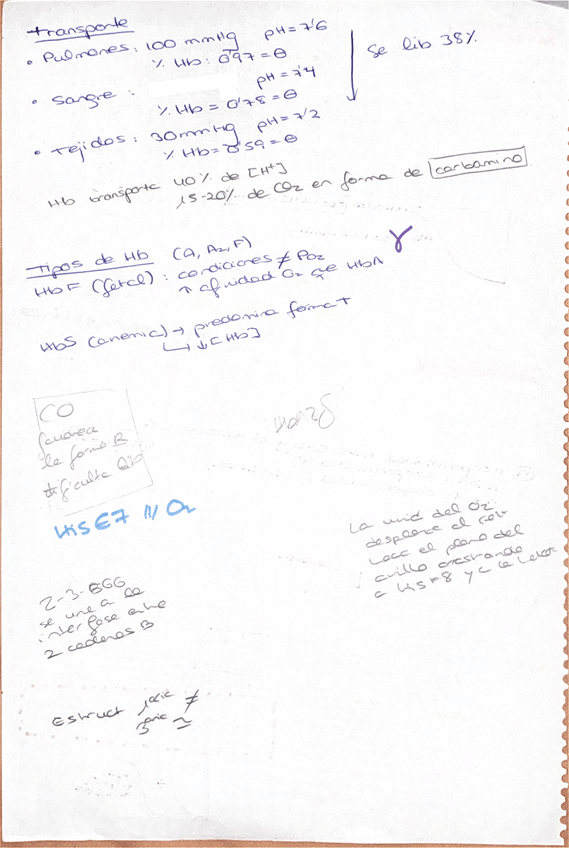 Transporte
• Pulmones: 100 mmHg pH = 7'6
% Hb: 0'97 = θ
• Sangre: pH = 7'4
% Hb = 0'78 = θ
• Tejidos: 30 mmHg pH = 7'2
% Hb = 0'59 = θ
Se lib 38%
Hb transporte 40% de [H+]
15-20% de CO2 en forma de carbamino
Tipos de Hb (A, A2, F)
HbF (fetal): condiciones ≠ PO2 γ
↑ afinidad O2 que HbA
HbS (anemia) → predomina forma T
↳ ↓ [Hb]
CO
favorece
la forma R
dificulta
HisE7 // O2
La unió del O2
desplaza el
el plano del
anillo arrastrando
a His F8 y a la
2-3-BGG
se une a la
interfase entre
2 cadenas B
Estruct 1aria ≠
3aria ≃